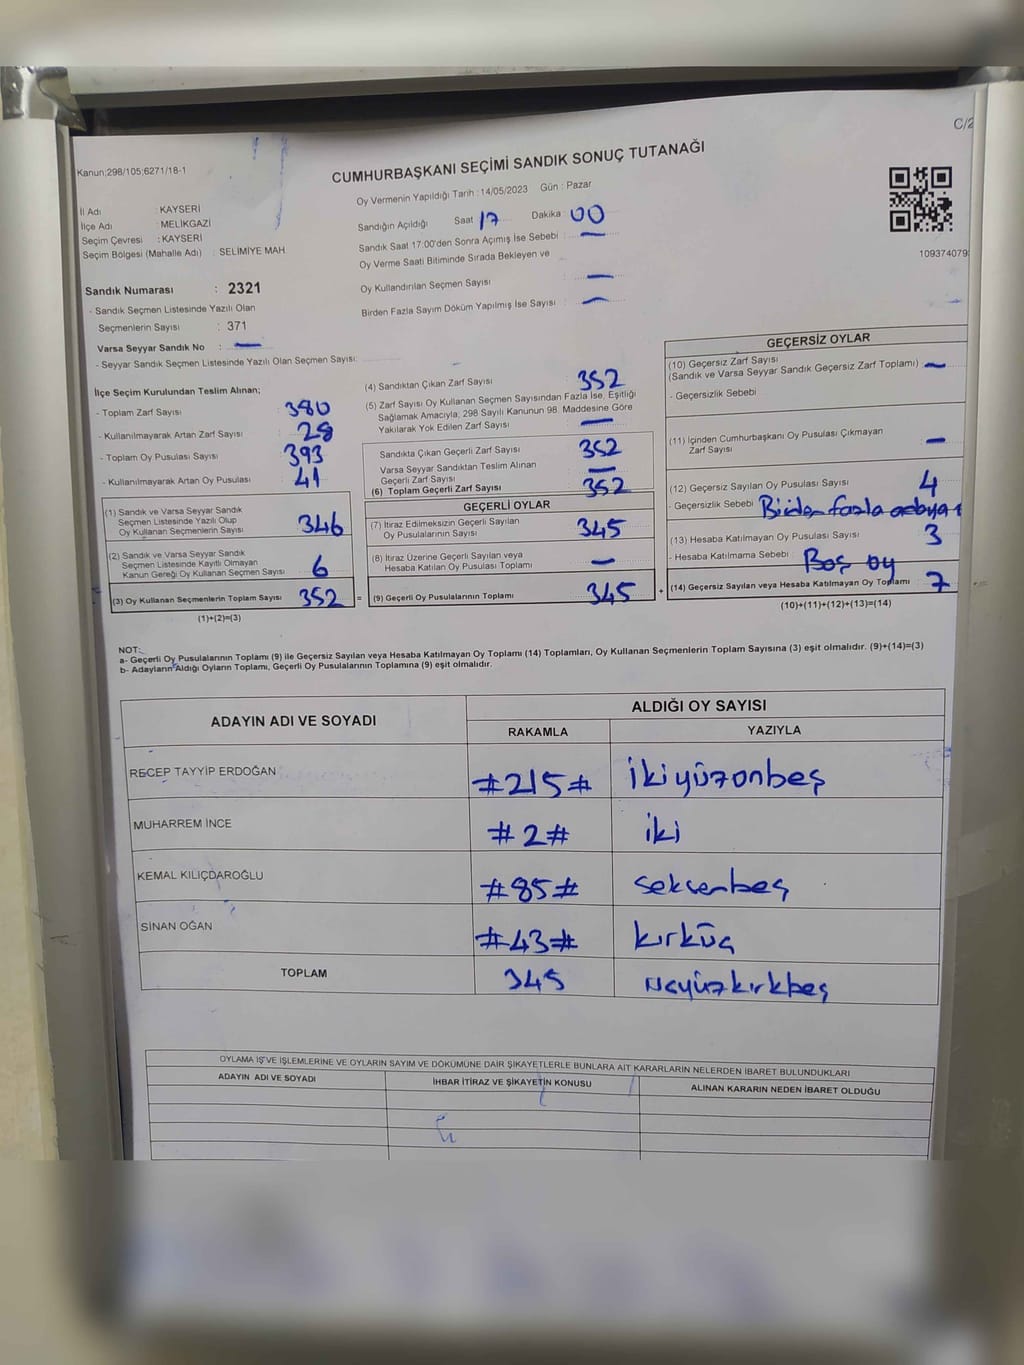 C/2
Kanun;298/105;6271/18-1
CUMHURBAŞKANI SEÇİMİ SANDIK SONUÇ TUTANAĞI
Oy Vermenin Yapıldığı Tarih : 14/05/2023 Gün : Pazar
İl Adı : KAYSERİ
İlçe Adı : MELİKGAZİ
Seçim Çevresi : KAYSERİ
Seçim Bölgesi (Mahalle Adı) : SELİMİYE MAH
Sandığın Açıldığı Saat 17 Dakika 00
Sandık Saat 17:00'den Sonra Açımış İse Sebebi : —
Oy Verme Saati Bitiminde Sırada Bekleyen ve
Oy Kullandırılan Seçmen Sayısı : —
Birden Fazla Sayım Döküm Yapılmış İse Sayısı : —
109374079
Sandık Numarası : 2321
- Sandık Seçmen Listesinde Yazılı Olan
Seçmenlerin Sayısı : 371
Varsa Seyyar Sandık No : —
- Seyyar Sandık Seçmen Listesinde Yazılı Olan Seçmen Sayısı:
İlçe Seçim Kurulundan Teslim Alınan;
- Toplam Zarf Sayısı 380
- Kullanılmayarak Artan Zarf Sayısı 28
- Toplam Oy Pusulası Sayısı 393
- Kullanılmayarak Artan Oy Pusulası 41
(1) Sandık ve Varsa Seyyar Sandık
Seçmen Listesinde Yazılı Olup
Oy Kullanan Seçmenlerin Sayısı 346
(2) Sandık ve Varsa Seyyar Sandık
Seçmen Listesinde Kayıtlı Olmayan
Kanun Gereği Oy Kullanan Seçmen Sayısı 6
(3) Oy Kullanan Seçmenlerin Toplam Sayısı 352 =
(1)+(2)=(3)
(4) Sandıktan Çıkan Zarf Sayısı 352
(5) Zarf Sayısı Oy Kullanan Seçmen Sayısından Fazla İse, Eşitliği
Sağlamak Amacıyla; 298 Sayılı Kanunun 98. Maddesine Göre
Yakılarak Yok Edilen Zarf Sayısı —
Sandıkta Çıkan Geçerli Zarf Sayısı 352
Varsa Seyyar Sandıktan Teslim Alınan
Geçerli Zarf Sayısı —
(6) Toplam Geçerli Zarf Sayısı 352
GEÇERLİ OYLAR
(7) İtiraz Edilmeksizin Geçerli Sayılan
Oy Pusulalarının Sayısı 345
(8) İtiraz Üzerine Geçerli Sayılan veya
Hesaba Katılan Oy Pusulası Toplamı —
(9) Geçerli Oy Pusulalarının Toplamı 345 +
GEÇERSİZ OYLAR
(10) Geçersiz Zarf Sayısı
(Sandık ve Varsa Seyyar Sandık Geçersiz Zarf Toplamı) —
- Geçersizlik Sebebi
(11) İçinden Cumhurbaşkanı Oy Pusulası Çıkmayan
Zarf Sayısı —
(12) Geçersiz Sayılan Oy Pusulası Sayısı 4
- Geçersizlik Sebebi Birden fazla
(13) Hesaba Katılmayan Oy Pusulası Sayısı 3
- Hesaba Katılmama Sebebi Boş oy
(14) Geçersiz Sayılan veya Hesaba Katılmayan Oy Toplamı 7
(10)+(11)+(12)+(13)=(14)
NOT:
a- Geçerli Oy Pusulalarının Toplamı (9) ile Geçersiz Sayılan veya Hesaba Katılmayan Oy Toplamı (14) Toplamları, Oy Kullanan Seçmenlerin Toplam Sayısına (3) eşit olmalıdır. (9)+(14)=(3)
b- Adayların Aldığı Oyların Toplamı, Geçerli Oy Pusulalarının Toplamına (9) eşit olmalıdır.
ADAYIN ADI VE SOYADI
ALDIĞI OY SAYISI
RAKAMLA YAZIYLA
RECEP TAYYİP ERDOĞAN #215# ikiyüzonbeş
MUHARREM İNCE #2# iki
KEMAL KILIÇDAROĞLU #85# seksenbeş
SİNAN OĞAN #43# kırküç
TOPLAM 345 üçyüzkırkbeş
OYLAMA İŞ VE İŞLEMLERİNE VE OYLARIN SAYIM VE DÖKÜMÜNE DAİR ŞİKAYETLERLE BUNLARA AİT KARARLARIN NELERDEN İBARET BULUNDUKLARI
ADAYIN ADI VE SOYADI İHBAR İTİRAZ VE ŞİKAYETİN KONUSU ALINAN KARARIN NEDEN İBARET OLDUĞU